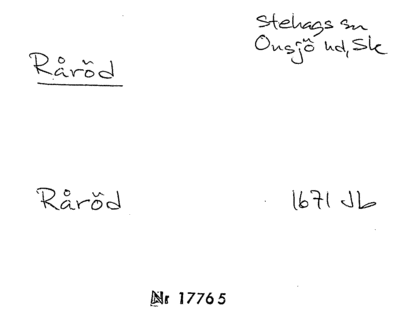 Stehags sn
Onsjö hd, Sk
Råröd
Råröd 1671 Jb
Nr 17765